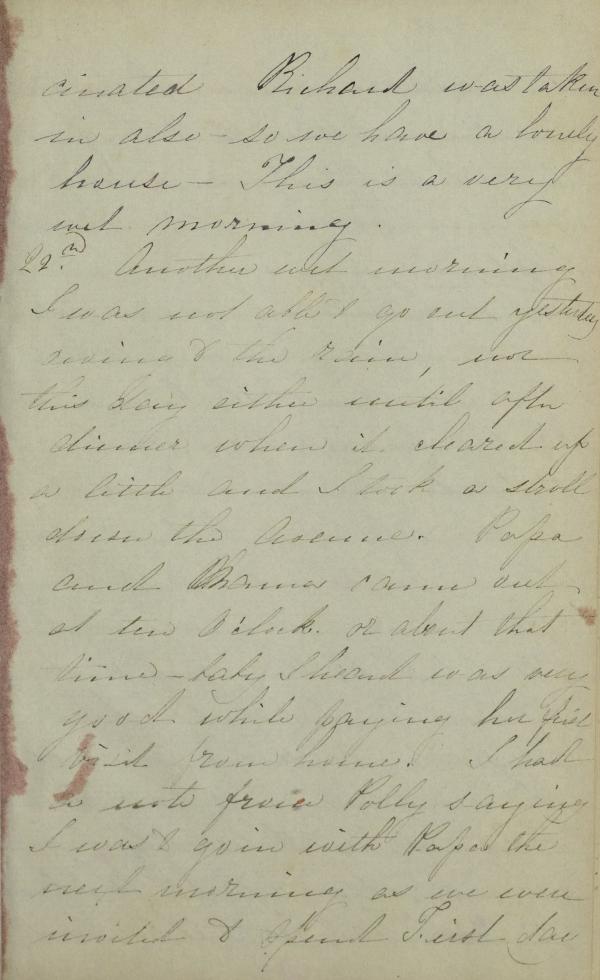 cinated Richard was taken
in also - so we have a lonely
house - This is a very
wet morning.
22nd Another wet morning
I was not able to go out yesterday
owing to the rain, nor
this day either until after
dinner when it cleared up
a little and I took a stroll
down the Avenue. Papa
and Mama came out
at ten O'clock. or about that
time - baby I heard was very
good while paying her first
visit from home. I had
a note from Polly saying
I was to go in with Papa the
next morning as we were
invited to spend First day